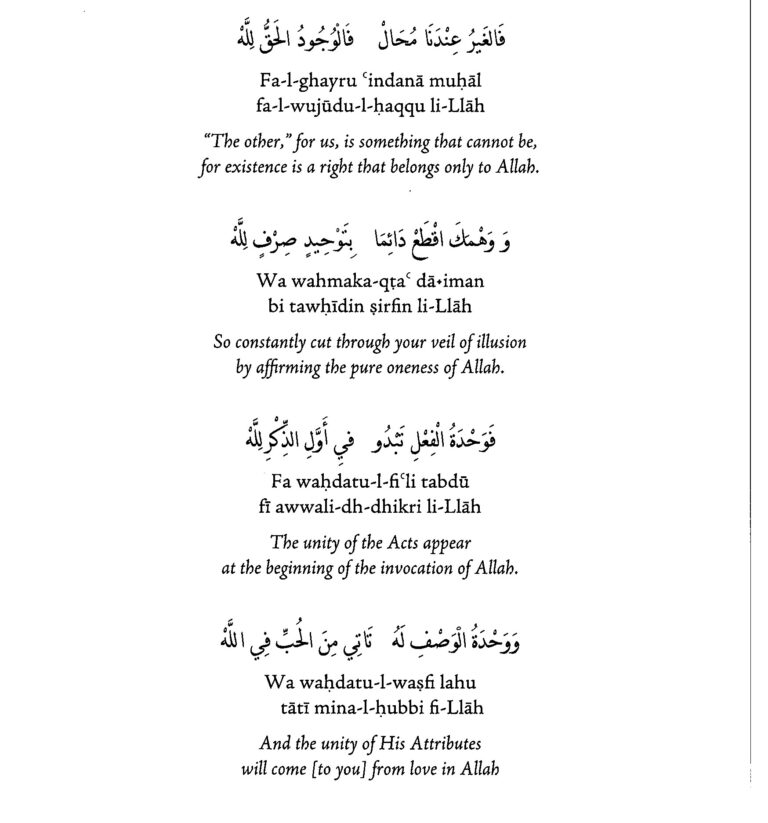 فَالغَيرُ عِنْدَنَا مُحَالْ فَالْوُجُودُ الحَقُّ لِلَّهْ
Fa-l-ghayru ʿindanā muḥāl
fa-l-wujūdu-l-ḥaqqu li-Llāh
“The other,” for us, is something that cannot be,
for existence is a right that belongs only to Allah.
وَ وَهْمَكَ اقْطَعْ دَائِمَا بِتَوْحِيدٍ صِرْفٍ لِلَّهْ
Wa wahmaka-qṭaʿ dā•iman
bi tawḥīdin ṣirfin li-Llāh
So constantly cut through your veil of illusion
by affirming the pure oneness of Allah.
فَوَحْدَةُ الْفِعْلِ تَبْدُو فِي أَوَّلِ الذِّكْرِ لِلَّهْ
Fa waḥdatu-l-fiʿli tabdū
fī awwali-dh-dhikri li-Llāh
The unity of the Acts appear
at the beginning of the invocation of Allah.
وَوَحْدَةُ الْوَصْفِ لَهُ تَاتِي مِنَ الحُبِّ فِي اللَّهْ
Wa waḥdatu-l-waṣfi lahu
tātī mina-l-ḥubbi fi-Llāh
And the unity of His Attributes
will come [to you] from love in Allah